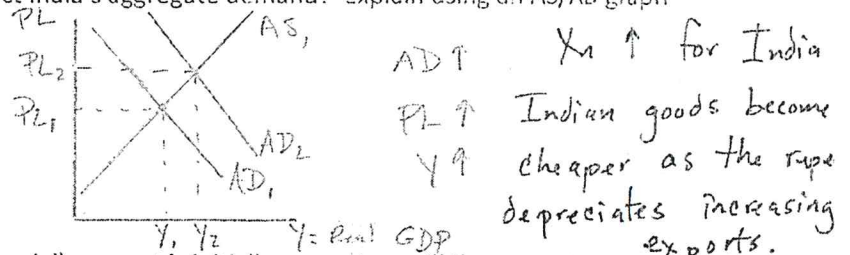 ct India's aggregate demand? Explain using an AS/AD graph
PL
AS₁
PL₂
PL₁
AD₂
AD₁
Y₁ Y₂ Y = Real GDP
AD ↑
PL ↑
Y ↑
Xn ↑ for India
Indian goods become
cheaper as the rupe
depreciates increasing
exports.